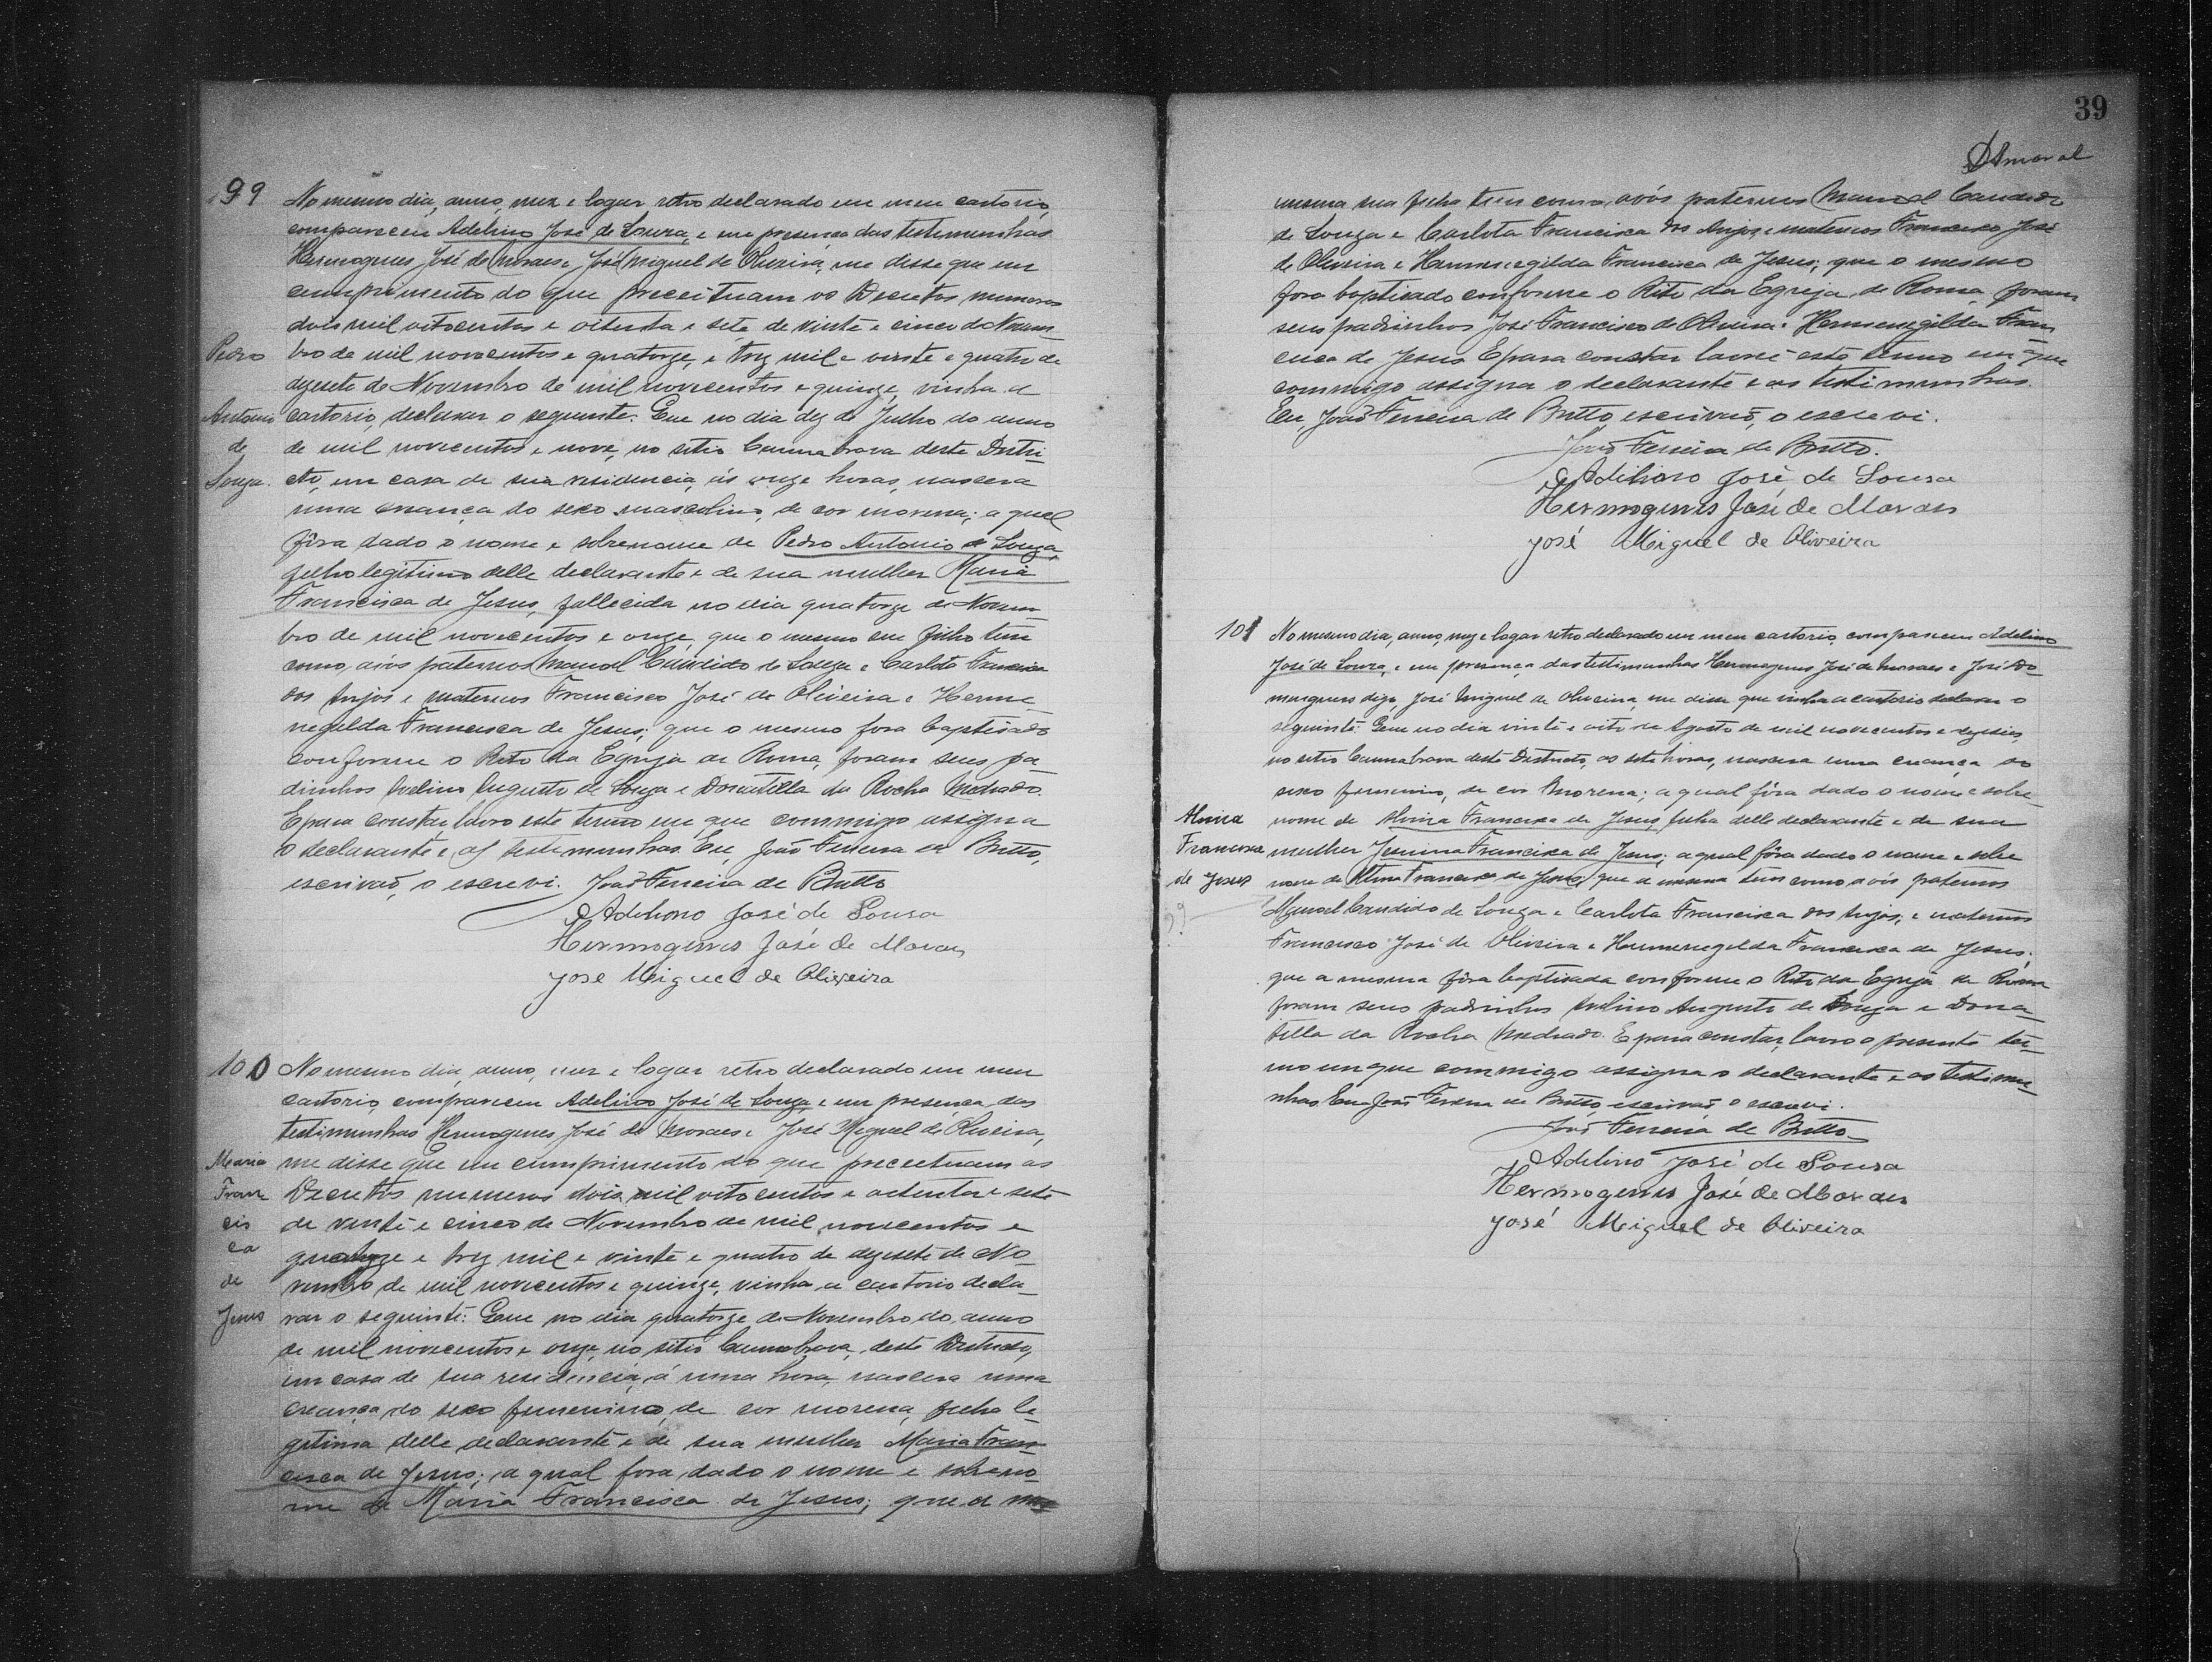 99
No mesmo dia, anno, mez e logar retro declarado em meu cartorio,
compareceu Adelino José de Souza, e em presença das testemunhas
Hermogenes José de Moraes e José Miguel de Oliveira, me disse que em
cumprimento do que preceituam os Decretos numeros
dois mil oitocentos e oitenta e sete de vinte e cinco de Novem-
bro de mil novecentos e quatorze, e trez mil e vinte e quatro de
dezesete de Novembro de mil novecentos e quinze, vinha a
cartorio, declarar o seguinte: Que no dia dez de Julho do anno
de mil novecentos e nove, no sitio Cannabrava deste Distri-
cto, em casa de sua residencia, ás onze horas, nascera
uma creança do sexo masculino, de cor morena; a qual
fôra dado o nome e sobrenome de Pedro Antonio de Souza,
filho legitimo delle declarante e de sua mulher Maria
Francisca de Jesus, fallecida no dia quatorze de Novem-
bro de mil novecentos e onze, que o mesmo seu filho tem
como, avós paternos Manoel Candido de Souza e Carlota Francisca
dos Anjos e maternos Francisco José de Oliveira e Herme-
negilda Francisca de Jesus; que o mesmo fora baptisado
conforme o Rito da Egreja de Roma, foram seus pa-
drinhos Avelino Augusto de Souza e Donatilla da Rocha Medrado.
E para constar, lavro este termo em que commigo assigna
o declarante e as testemunhas. Eu, João Ferreira de Britto,
escrivão, o escrevi. João Ferreira de Britto
Adelino José de Sousa
Hermogenes José de Moraes
José Miguel de Oliveira
Pedro
Antonio
de
Souza.
100
No mesmo dia, anno, mez e logar retro declarado em meu
cartorio, compareceu Adelino José de Souza, e em presença das
testemunhas Hermogenes José de Moraes e José Miguel de Oliveira,
me disse que em cumprimento do que preceituam os
Decretos numeros dois mil oitocentos e oitenta e sete
de vinte e cinco de Novembro de mil novecentos e
quatorze e trez mil e vinte e quatro de dezesete de No-
vembro de mil novecentos e quinze, vinha a cartorio decla-
rar o seguinte: Que no dia quatorze de Novembro do anno
de mil novecentos e onze, no sitio Cannabrava, deste Districto,
em casa de sua residencia, á uma hora, nascera uma
creança do sexo femenino, de cor morena, filha le-
gitima delle declarante e de sua mulher Maria Fran-
cisca de Jesus; a qual fora dado o nome e sobreno-
me de Maria Francisca de Jesus; que a
Maria
Fran
cis
ca
de
Jesus
39
DAmaral
mesma sua filha tem como, avós paternos Manoel Candido
de Souza e Carlota Francisca dos Anjos, e maternos Francisco José
de Oliveira e Hermenegilda Francisca de Jesus; que o mesmo
fora baptisado conforme o Rito da Egreja de Roma, foram
seus padrinhos José Francisco de Oliveira e Hermenegilda Fran
cisca de Jesus. E para constar lavrei este termo em que
commigo assigna o declarante e as testimunhas.
Eu, João Ferreira de Britto, escrivão, o escrevi.
João Ferreira de Britto.
Adelino José de Sousa
Hermogenes José de Moraes
José Miguel de Oliveira
101
No mesmo dia, anno, mez e logar retro declarado em meu cartorio, compareceu Adelino
José de Souza, e em presença, das testimunhas Hermogenes José de Moraes e José
digo, José Miguel de Oliveira, me disse que vinha a cartorio declarar o
seguinte: Que no dia vinte e oito de Agosto de mil novecentos e
no sitio Cannabrava deste Districto, as sete horas, nascera uma creança do
sexo femenino, de cor morena; a qual fôra dado o nome e sobre-
nome de Alvira Francisca de Jesus, filha delle declarante e de sua
mulher Jesuina Francisca de Jesus; a qual fôra dado o nome e sobre
nome de Francisca de Jesus, que a mesma tem como avós paternos
Manoel Candido de Souza e Carlota Francisca dos Anjos, e maternos
Francisco José de Oliveira e Hermenegilda Francisca de Jesus;
que a mesma fôra baptisada conforme o Rito da Egreja de Roma
foram seus padrinhos Avelino Augusto de Souza e Dona-
tilla da Rocha Medrado. E para constar, lavro o presente ter-
mo em que commigo assigna o declarante e as testimu-
nhas. Eu João Ferreira de Britto, escrivão, o escrevi.
João Ferreira de Britto
Adelino José de Sousa
Hermogenes José de Moraes
José Miguel de Oliveira
Alvira
Francisca
de Jesus